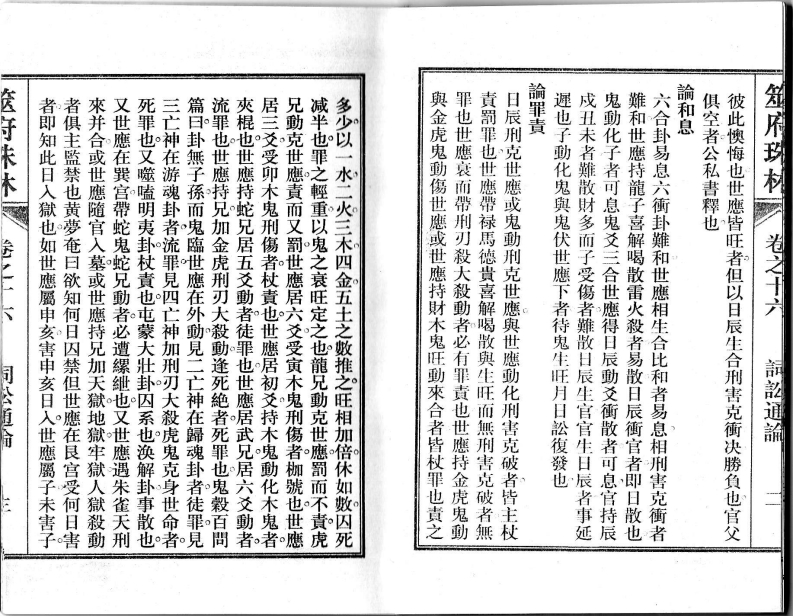 筮府珠林
卷之十六
詞訟通論
二
彼此懊悔也世應皆旺者但以日辰生合刑害克衝决勝負也官父
俱空者公私書釋也
論和息
六合卦易息六衝卦難和世應相生合比和者易息相刑害克衝者
難和世應持龍子喜解喝散雷火殺者易散日辰衝官者即日散也
鬼動化子者可息鬼爻三合世應得日辰動爻衝散者可息官持辰
戌丑未者難散財多而子受傷者難散日辰生官官生日辰者事延
遲也子動化鬼與鬼伏世應下者待鬼生旺月日訟復發也
論罪責
日辰刑克世應或鬼動刑克世應與世應動化刑害克破者皆主杖
責罰罪也世應帶祿馬德貴喜解喝散與生旺而無刑害克破者無
罪也世應衰而帶刑刃殺大殺動者必有罪責也世應持金虎鬼動
與金虎鬼動傷世應或世應持財木鬼旺動來合者皆杖罪也責之
多少以一水二火三木四金五土之數推之旺相加倍休如數囚死
减半也罪之輕重以鬼之衰旺定之也龍兄動克世應罰而不責虎
兄動克世應責而又罰世應居六爻受寅木鬼刑傷者枷號也世應
居三爻受卯木鬼刑傷者杖責也世應居初爻持木鬼動化木鬼者
夾棍也世應持蛇兄居五爻動者徒罪也世應居武兄居六爻動者
流罪也世應持兄加金虎刑刃大殺動逢死絕者死罪也鬼穀百問
篇曰卦無子孫而鬼臨世應在外動見二亡神在歸魂卦者徒罪見
三亡神在游魂卦者流罪見四亡神加刑刃大殺虎鬼克身世命者
死罪也又噬嗑明夷卦杖責也屯蒙大壯卦囚系也渙解卦事散也
又世應在巽宫帶蛇鬼蛇兄動者必遭縲紲也又世應遇朱雀天刑
來并合或世應隨官入墓或世應持兄加天獄地獄牢獄人獄殺動
者俱主監禁也黄夢奄曰欲知何日囚禁但世應在艮宫受何日害
者即知此日入獄也如世應屬申亥害申亥日入世應屬子未害子
筮府珠林
卷之十六
詞訟通論
三